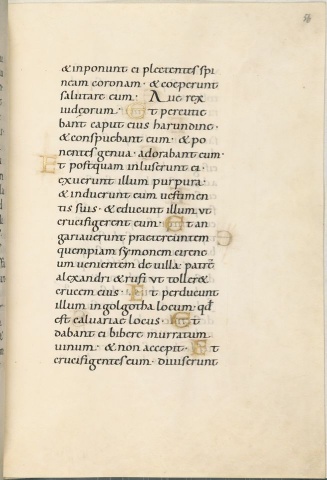 56
& inponunt ei plectentes spi
neam coronam · & coeperunt
salutare eum · Aue rex
iudeorum · Et percutie
bant caput eius harundine ·
& conspuebant eum · & po
nentes genua · adorabant eum ·
Et postquam inluserunt ei ·
exuerunt illum purpura ·
& induerunt eum uestimen
tis suis · & educunt illum vt
crucifigerent eum · Et an
gariauerunt praetereuntem
quempiam symonem cirene
um uenientem de uilla · patrē
alexandri & rufi vt toller&
crucem eius · Et perducunt
illum in golgotha locum · qđ
est caluariae locus · Et
dabant ei bibere murratum
uinum · & non accepit · Et
crucifigentes eum · diuiserunt